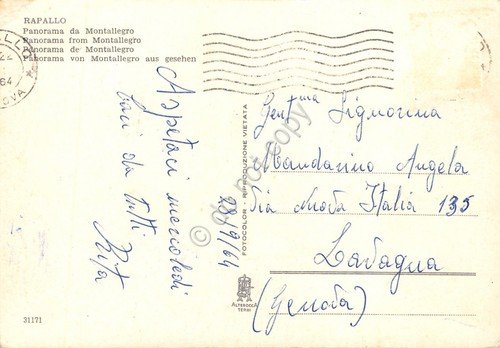 RAPALLO
Panorama da Montallegro
Panorama from Montallegro
Panorama de Montallegro
Panorama von Montallegro aus gesehen
Aspetaci mercoledì
baci da tutti
Rita
28/9/64
FOTOCOLOR - RIPRODUZIONE VIETATA
ALTEROCCA
TERNI
Gent.ma Signorina
Mandarino Angela
Via Nuova Italia 135
Lavagna
(Genova)
31171